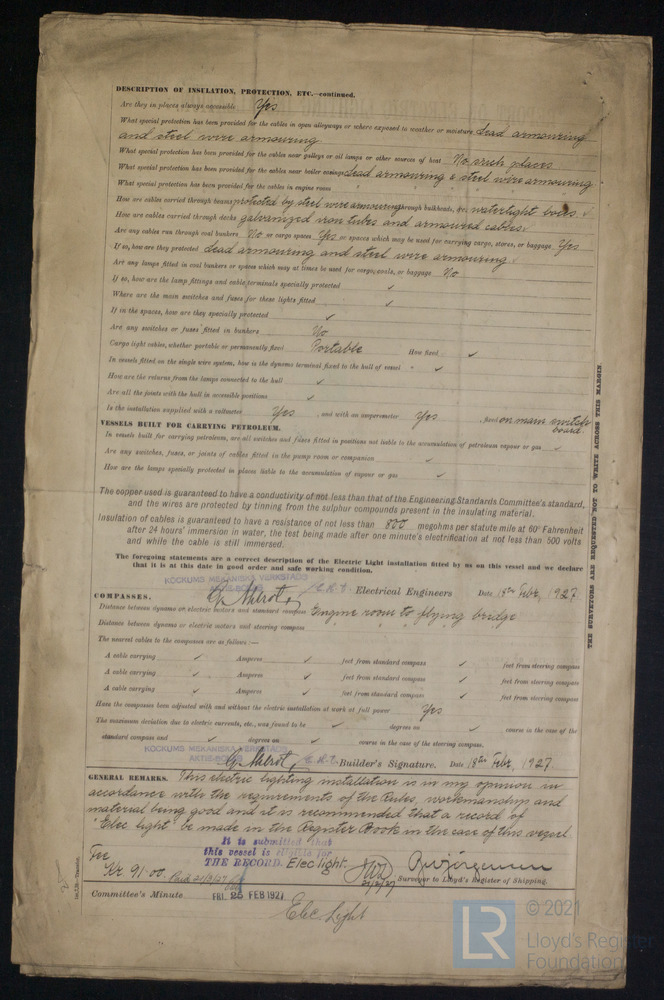 DESCRIPTION OF INSULATION, PROTECTION, ETC.—continued.
Are they in places always accessible Yes
What special protection has been provided for the cables in open alleyways or where exposed to weather or moisture Lead armouring
and steel wire armouring
What special protection has been provided for the cables near galleys or oil lamps or other sources of heat No such places
What special protection has been provided for the cables near boiler casings Lead armouring & steel wire armouring
What special protection has been provided for the cables in engine room " " " "
How are cables carried through beams protected by steel wire armouring through bulkheads, &c. watertight boxes ✓
How are cables carried through decks galvanized iron tubes and armoured cables ✓
Are any cables run through coal bunkers No or cargo spaces Yes or spaces which may be used for carrying cargo, stores, or baggage Yes
If so, how are they protected Lead armouring and steel wire armouring ✓
Are any lamps fitted in coal bunkers or spaces which may at times be used for cargo, coals, or baggage No
If so, how are the lamp fittings and cable terminals specially protected ✓
Where are the main switches and fuses for these lights fitted ✓
If in the spaces, how are they specially protected ✓
Are any switches or fuses fitted in bunkers No
Cargo light cables, whether portable or permanently fixed Portable How fixed ✓
In vessels fitted on the single wire system, how is the dynamo terminal fixed to the hull of vessel ✓
How are the returns from the lamps connected to the hull ✓
Are all the joints with the hull in accessible positions ✓
Is the installation supplied with a voltmeter Yes, and with an amperemeter Yes, fixed on main switch
board.
VESSELS BUILT FOR CARRYING PETROLEUM.
In vessels built for carrying petroleum, are all switches and fuses fitted in positions not liable to the accumulation of petroleum vapour or gas ✓
Are any switches, fuses, or joints of cables fitted in the pump room or companion ✓
How are the lamps specially protected in places liable to the accumulation of vapour or gas ✓
The copper used is guaranteed to have a conductivity of not less than that of the Engineering Standards Committee's standard,
and the wires are protected by tinning from the sulphur compounds present in the insulating material.
Insulation of cables is guaranteed to have a resistance of not less than 800 megohms per statute mile at 60° Fahrenheit
after 24 hours' immersion in water, the test being made after one minute's electrification at not less than 500 volts
and while the cable is still immersed.
The foregoing statements are a correct description of the Electric Light installation fitted by us on this vessel and we declare
that it is at this date in good order and safe working condition.
KOCKUMS MEKANISKA VERKSTADS
AKTIE-BOLAG
Electrical Engineers Date 18th Febr. 1927
COMPASSES.
Distance between dynamo or electric motors and standard compass Engine room to flying bridge
Distance between dynamo or electric motors and steering compass
The nearest cables to the compasses are as follows:—
A cable carrying ✓ Amperes ✓ feet from standard compass ✓ feet from steering compass
A cable carrying ✓ Amperes ✓ feet from standard compass ✓ feet from steering compass
A cable carrying ✓ Amperes ✓ feet from standard compass ✓ feet from steering compass
Have the compasses been adjusted with and without the electric installation at work at full power Yes
The maximum deviation due to electric currents, etc., was found to be ✓ degrees on ✓ course in the case of the
standard compass and ✓ degrees on ✓ course in the case of the steering compass.
KOCKUMS MEKANISKA VERKSTADS
AKTIE-BOLAG
Builder's Signature. Date 18th Febr. 1927.
GENERAL REMARKS. This electric lighting installation is in my opinion in
accordance with the requirements of the Rules, workmanship and
material being good and it is recommended that a record of
"Elec. light" be made in the Register Book in the case of this vessel
It is submitted that
this vessel is eligible for
THE RECORD. Elec light.
21/2/27
Fee
Kr 91.00. Paid 21/3/27
Surveyor to Lloyd's Register of Shipping.
Committee's Minute FRI. 25 FEB 1927
Elec. Light
THE SURVEYORS ARE REQUESTED NOT TO WRITE ACROSS THIS MARGIN.
LR
© 2021
Lloyd's Register
Foundation